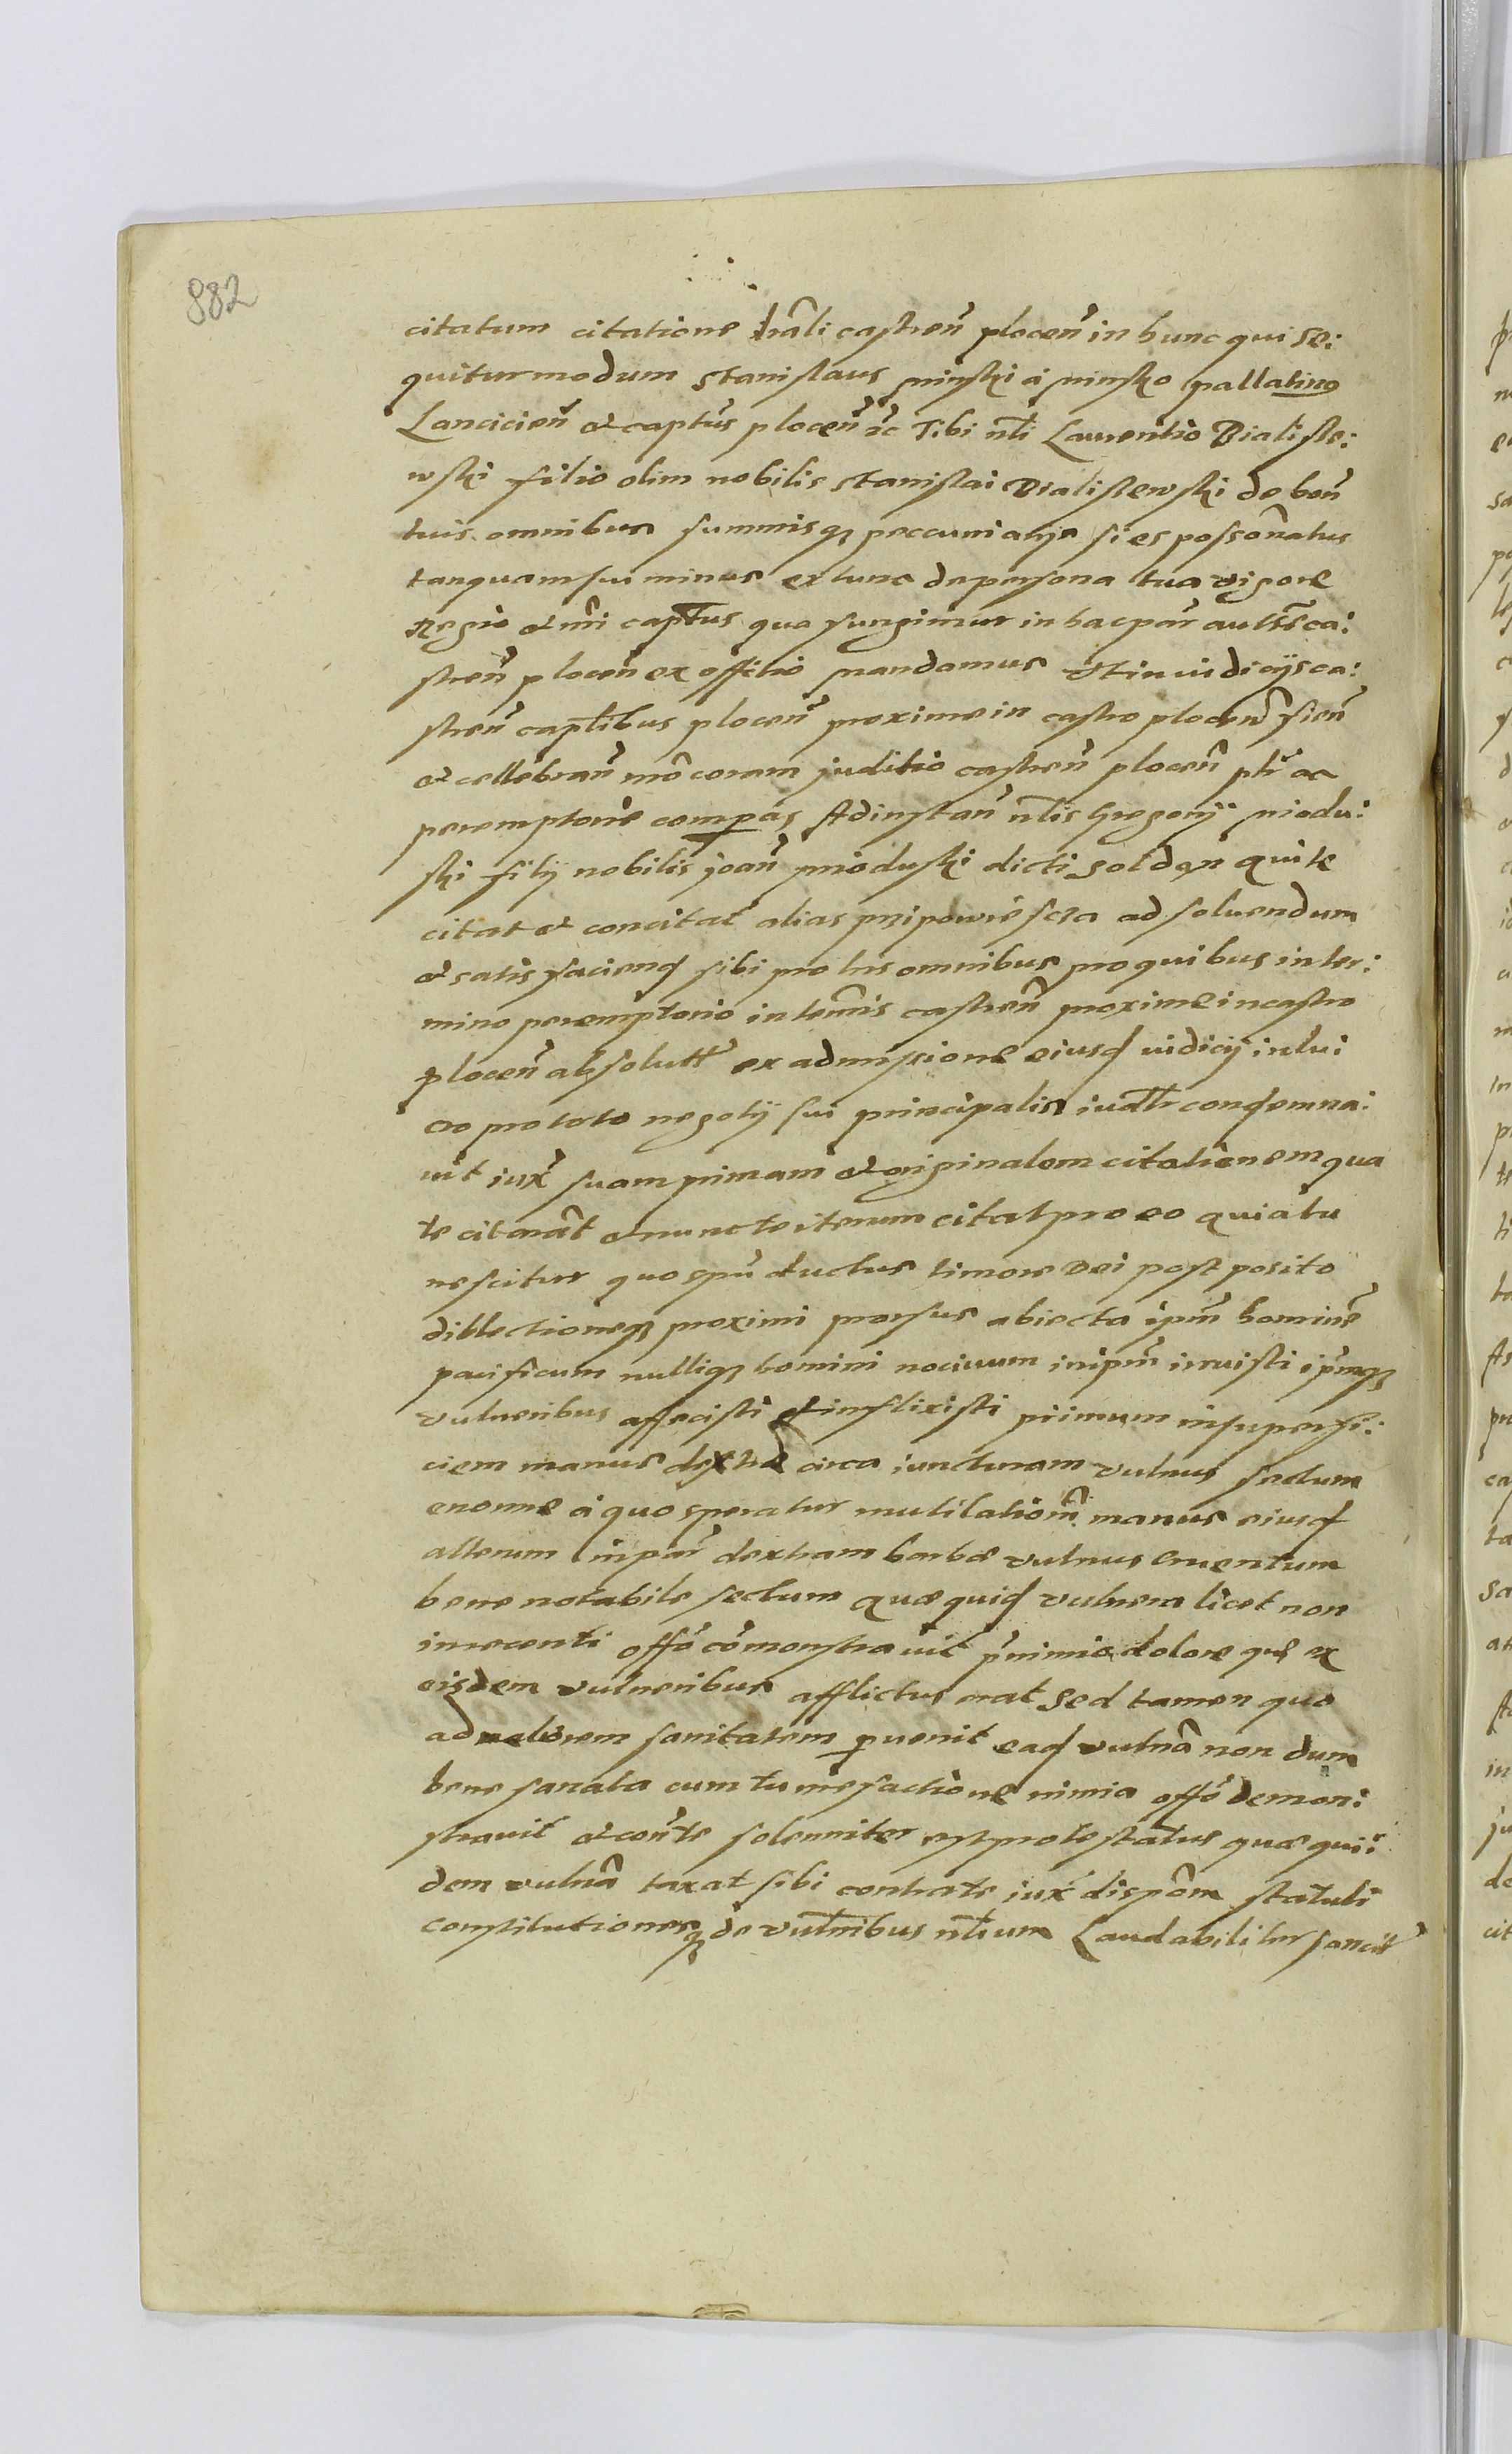 882
citatum citatione lrãli castreñ ploceñ in hunc qui se:
quitur modum Stanislaus Minski a Minsko pallatinꝯ
Lancicieñ et capitꝰs ploceñ ꝛc Tibi nłi Laurentio Bialiſze:
wski filio olim nobilis Stanislai Bialiszewski de boñ
tuis omnibus summisqꝫ peccuniarys si es possõnatus
tanquam sui minus extunc de persona tua vigore
Regio et nr̃i captus quo fungimur in hac par̃ autłẽ ca:
streñ ploceñ ex officio mandamus vt in iudicijs ca:
streñ captłibus ploceñ proxime in castro ploceñ fień
et cellebrań mõ coram juditio castreñ ploceñ płr ac
peremptorie compas Ad instań nłis Gregorij Miodu:
ski filij nobilis Joań Mioduski dicti Soldan qui te
citat et concitat alias przipowiescza ad soluendum
et satisfaciend sibi pro his omnibus pro quibus in ter:
mino peremptorio in termĩs castreñ proxime in castro
ploceñ absolutt ex admissione eiusd iudicij in lu:
cro pro toto negotij sui principalis iudłr condemna:
uit iux̃ suam primam et originalem citationem qua
te citarãt et nunc te iterum citat pro eo quia tu
nescitur quo spũ ductus timore Dei post posito
dillectioneqꝫ proximi prorsus abiecta ipm̃ hominẽ
pacificum nulliqꝫ homini nociuum in ipm̃ irruisti ipm̃qꝫ
vulneribus affecisti et inflixisti primum in superfi:
ciem manus dextræ circa iuncturam vulnus sectum
enorme a quo speratur mutilationẽ manus eiusd
alterum in par̃ dextram barbæ vulnus cruentum
bene notabile sectum quæ quid vulnera licet non
in recenti offõ cõmonstrauit p̃ nimio dolore que ex
eisdem vulneribus afflictus erat sed tamen quo
ad meliorem sanitatem peruenit ead vulnã non dum
bene sanata cum tumefactione nimia offõ demon:
strauit et cońte solenniter est protestatus quæ qui:
dem vulnã taxat sibi contra te iux̃ dispõm statuti
constitutionesqꝫ de vulnibus nłium Laudabiliter sancit